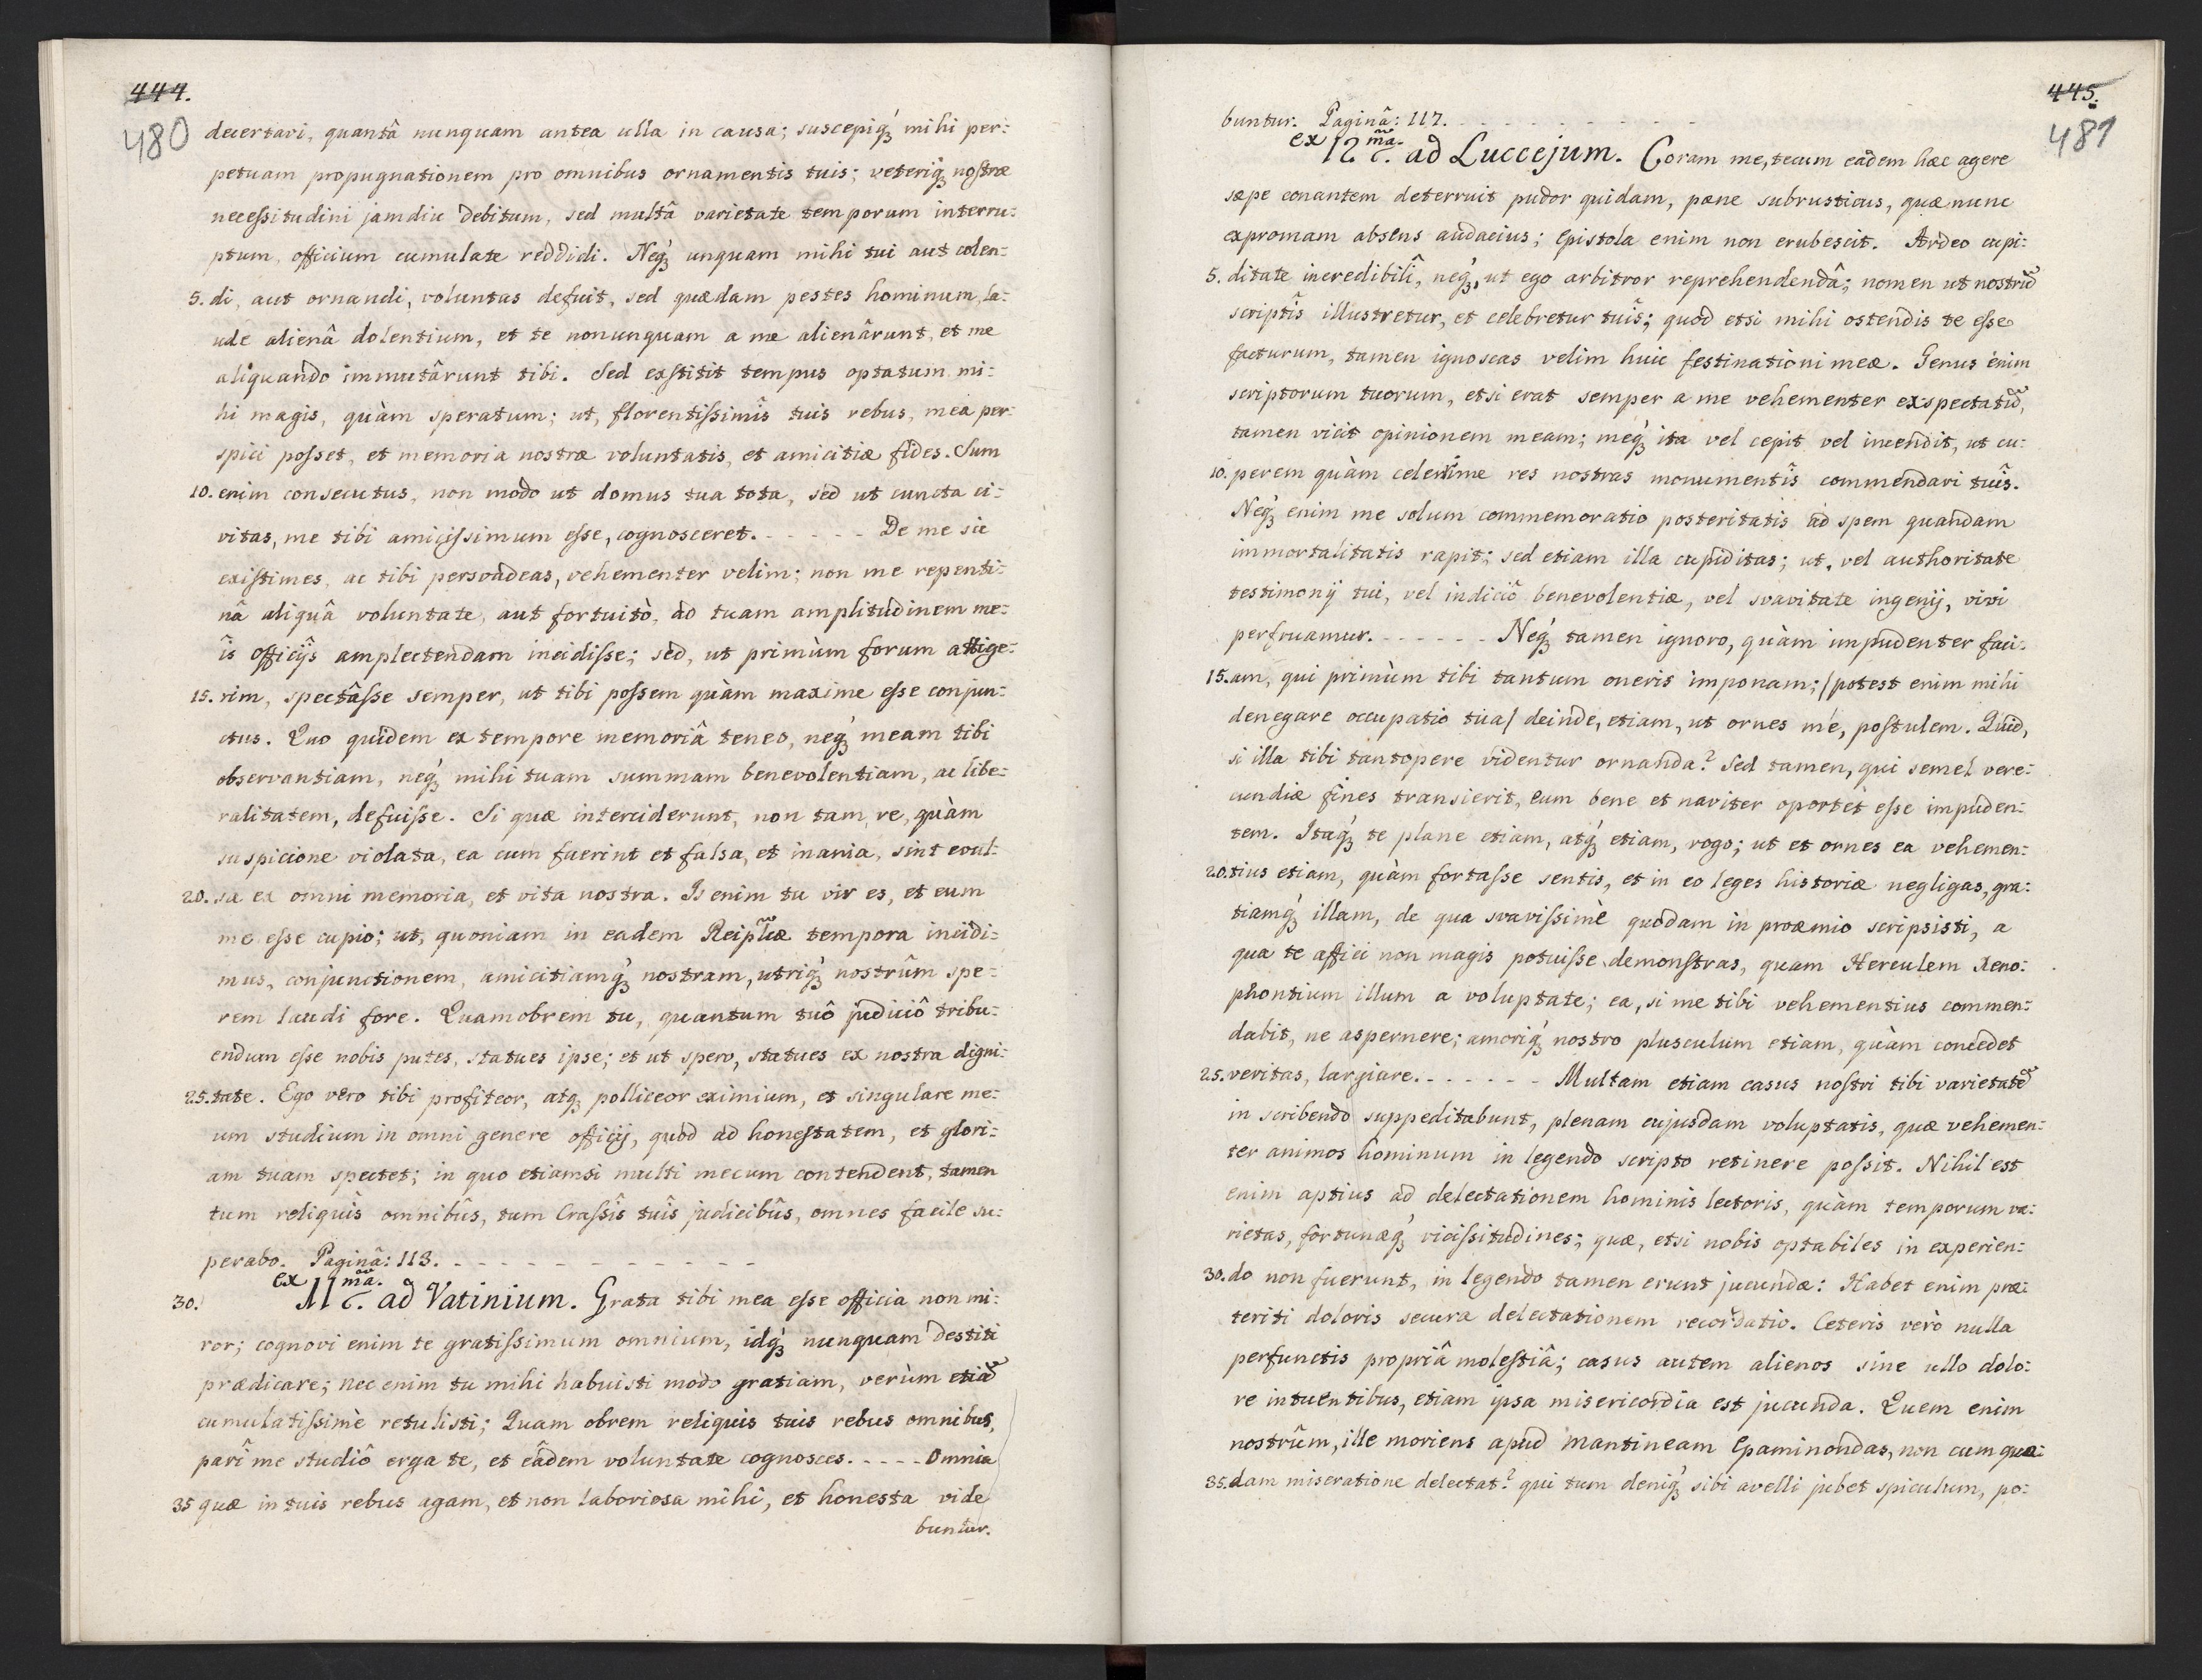 444.
480
decertari, quantâ nunquam antea ulla in causa; suscepiq́₃ mihi per:
petuam propugnationem pro omnibus ornamentis tuis; veteriq́₃ nostræ
necessitudini jamdiu debitum, sed multâ varietate temporum interru:
ptum, officium cumulate reddidi. Neq́₃ unquam mihi tui aut colen:
5. di, aut ornandi, voluntas defuit, sed quædam pestes hominum, la:
ude alienâ dolentium, et te nonunquam a me alienârunt, et me
aliquando immutârunt tibi. Sed exstitit tempus optatum mi:
hi magis, quàm speratum; ut, florentissimîs tuis rebus, mea per:
spici posset, et memoria nostræ voluntatis, et amicitiæ fides. Sum
10. enim consecutus, non modo ut domus tua tota, sed ut cuncta ci:
vitas, me tibi amicissimum esse, cognosceret. - - - - - De me sic
existimes, ac tibi persvadeas, vehementer velim; non me repenti:
nâ aliquâ voluntate, aut fortuitò, ad tuam amplitudinem me:
îs officijs amplectendam incidisse; sed, ut primùm forum attige:
15. rim, spectâsse semper, ut tibi possem quàm maxime esse conjun:
ctus. Quo quidem ex tempore memoriâ teneo, neq́₃ meam tibi
observantiam, neq́₃ mihi tuam summam benevolentiam, ac libe:
ralitatem, defuisse. Si quæ interciderunt, non tam, re, quàm
suspicione violata, ea cum fuerint et falsa, et inania, sint evul:
20. sa ex omni memoria, et vita nostra. Is enim tu vir es, et eum
me esse cupio; ut, quoniam in eadem Reiplicæ tempora incidi:
mus, conjunctionem, amicitiamq́₃ nostram, utriq́₃ nostrûm spe:
rem laudi fore. Quamobrem tu, quantum tuô judiciô tribu:
endum esse nobis putes, statues ipse; et ut spero, statues ex nostra digni:
25. tate. Ego vero tibi profiteor, atq₃ polliceor eximium, et singulare me:
um studium in omni genere officij, quod ad honestatem, et glori:
am tuam spectet; in quo etiamsi multi mecum contendent, tamen
tum reliquis omnibûs, tum Crassîs tuîs judicibûs, omnes facile su:
perabo. Paginâ: 113. - - - - - - - - - - -
30. ex 11 mã. c̃. ad Vatinium. Grata tibi mea esse officia non mi:
ror; cognovi enim te gratissimum omnium, idq́₃ nunquam destiti
prædicare; nec enim tu mihi habuisti modo gratiam, verùm etiã
cumulatissimè retulisti; Quam obrem reliquis tuis rebus omnibus,
parî me studiô erga te, et eâdem voluntate cognosces. - - - - - Omnia
35 quæ in tuis rebus agam, et non laboriosa mihi, et honesta vide
buntur.
445.
481
buntur. Paginâ: 117. - - - - - - - - -
ex 12 mã. c̃. ad Luccejum. Coram me, tecum eadem hæc agere
sæpe conantem deterruit pudor quidam, pæne subrusticus, quæ nunc
expromam absens audacius; Epistola enim non erubescit. Ardeo cupi:
5. ditate incredibilî, neq́₃, ut ego arbitror reprehendendâ; nomen ut nostrũ
scriptîs illustretur, et celebretur tuîs; quod etsi mihi ostendis te esse
facturum, tamen ignoscas velim huic festinationi meæ. Genus enim
scriptorum tuorum, etsi erat semper a me vehementer exspectatũ,
tamen vicit opinionem meam; meq́₃ ita vel cepit vel incendit, ut cu:
10. perem quàm celerrime res nostras monumentîs commendari tuîs.
Neq́₃ enim me solum commemoratio posteritatis ad spem quandam
immortalitatis rapit; sed etiam illa cupiditas; ut, vel authoritate
testimonij tui, vel indiciô benevolentiæ, vel svavitate ingenij, vivi
perfruamur. - - - - - - Neq́₃ tamen ignoro, quàm impudenter faci:
15. am, qui primùm tibi tantum oneris imponam; /potest enim mihi
denegare occupatio tua/ deinde, etiam, ut ornes me, postulem. Quid,
si illa tibi tantopere videntur ornanda? Sed tamen, qui semel vere:
cundiæ fines transierit, eum bene et naviter oportet esse impuden:
tem. Itaq́₃ te plane etiam, atq́₃ etiam, rogo; ut et ornes ea vehemen:
20. tius etiam, quàm fortasse sentis, et in eo leges historiæ negligas, gra:
tiamq́₃ illam, de qua svavissimè quodam in proæmio scripsisti, a
qua te affici non magis potuisse demonstras, quam Herculem Xeno:
phontium illum a voluptate; ea, si me tibi vehementius commen:
dabit, ne aspernere; amoriq́₃ nostro plusculum etiam, quàm concedet
25. veritas, largiare. - - - - - - - Multam etiam casus nostri tibi varietatẽ
in scribendo suppeditabunt, plenam cujusdam voluptatis, quæ vehemen:
ter animos hominum in legendo scripto retinere possit. Nihil est
enim aptius ad delectationem hominis lectoris, quàm temporum va:
rietas, fortunæq́₃ vicissitudines; quæ, etsi nobis optabiles in experien:
30. do non fuerunt, in legendo tamen erunt jucundæ: Habet enim præ:
teriti doloris secura delectationem recordatio. Ceteris verò nulla
perfunctis propriâ molestiâ; casus autem alienos sine ullo dolo:
re intuentibus, etiam ipsa misericordia est jucunda. Quem enim
nostrûm, ille moriens apud Mantineam Epaminondas, non cum qua:
35. dam miseratione delectat? qui tum deniq́₃ sibi avelli jubet spiculum, po: